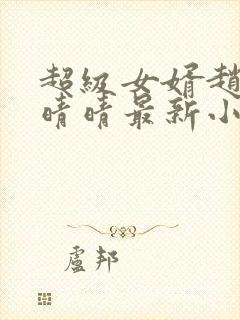 超級女婿趙
晴晴最新小
盧邦